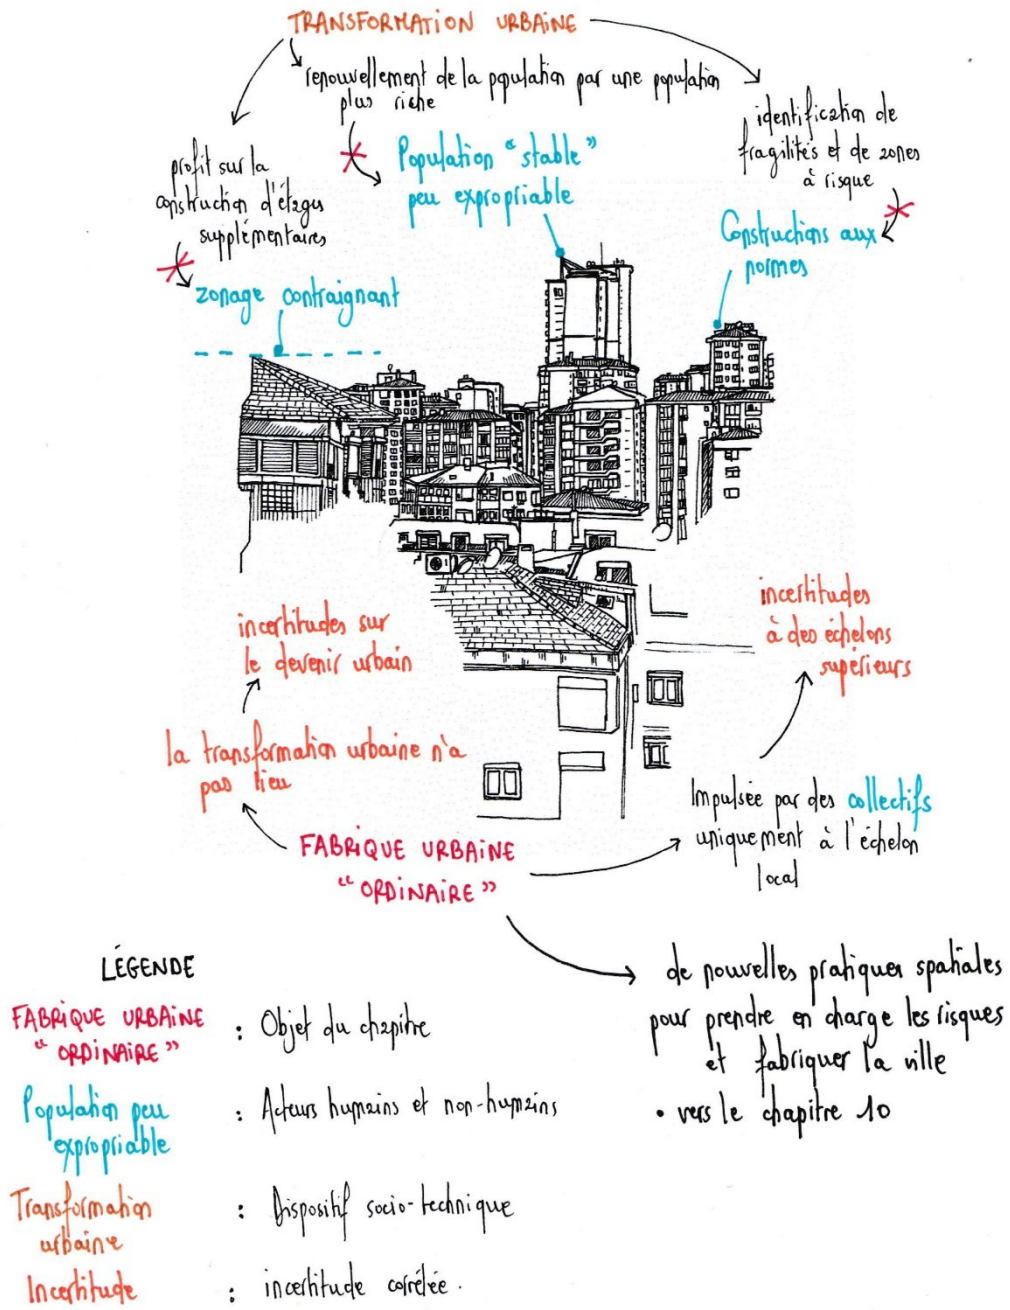 TRANSFORMATION URBAINE
renouvellement de la population par une population
plus riche
identification de
fragilités et de zones
à risque
profit sur la
construction d'étages
supplémentaires
Population "stable"
peu expropriable
Constructions aux
normes
zonage contraignant
incertitudes sur
le devenir urbain
incertitudes
à des échelons
supérieurs
la transformation urbaine n'a
pas lieu
Impulsée par des collectifs
uniquement à l'échelon
local
FABRIQUE URBAINE
"ORDINAIRE"
de nouvelles pratiques spatiales
pour prendre en charge les risques
et fabriquer la ville
• vers le chapitre 10
LÉGENDE
FABRIQUE URBAINE
"ORDINAIRE"
: Objet du chapitre
Population peu
expropriable
: Acteurs humains et non-humains
Transformation
urbaine
: Dispositif socio-technique
Incertitude
: incertitude corrélée.